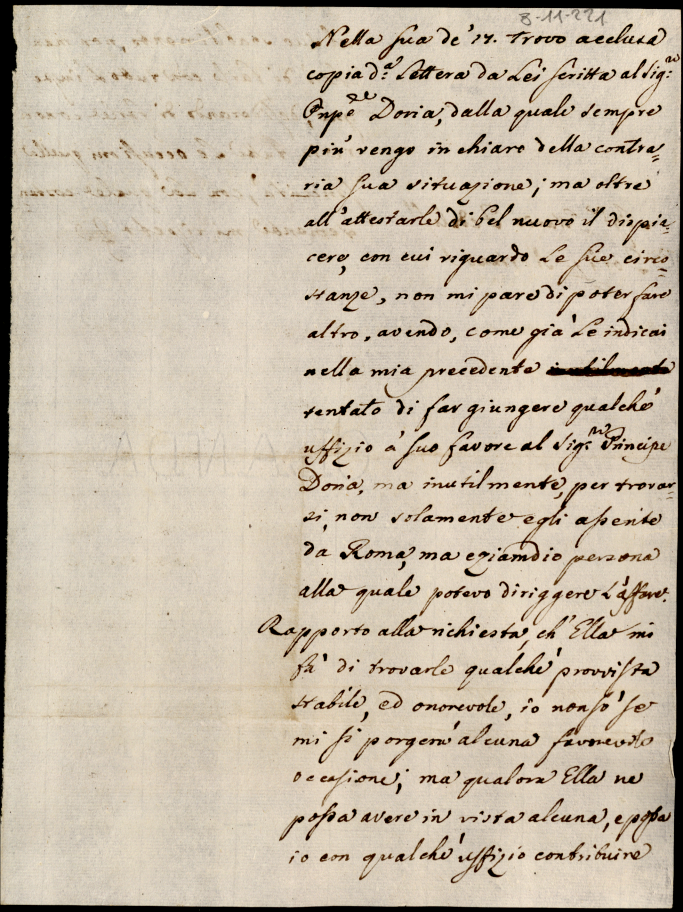 8-11-221
Nella sua de' 17. trovo acclusa
copia d.ª Lettera da Lei scritta al Sig.ʳ
Pnpe Doria, dalla quale sempre
più vengo in chiaro della contra=
ria sua situazione; ma oltre
all'attestarle di bel nuovo il dispia=
cere, con cui riguardo Le sue circo=
stanze, non mi pare di poter fare
altro, avendo, come già Le indicai
nella mia precedente inutilmente
tentato di far giungere qualche
uffizio à suo favore al Sig.ʳ Principe
Doria, ma inutilmente, per trovar=
si, non solamente egli assente
da Roma, ma eziamdio persona
alla quale potevo diriggere L'affare.
Rapporto alla richiesta, ch'Ella mi
fà di trovarle qualche provvista
stabile, ed onorevole, io non sò se
mi si porgerà alcuna favorevole
occasione; ma qualora Ella ne
possa avere in vista alcuna, e possa
io con qualche uffizio contribuire